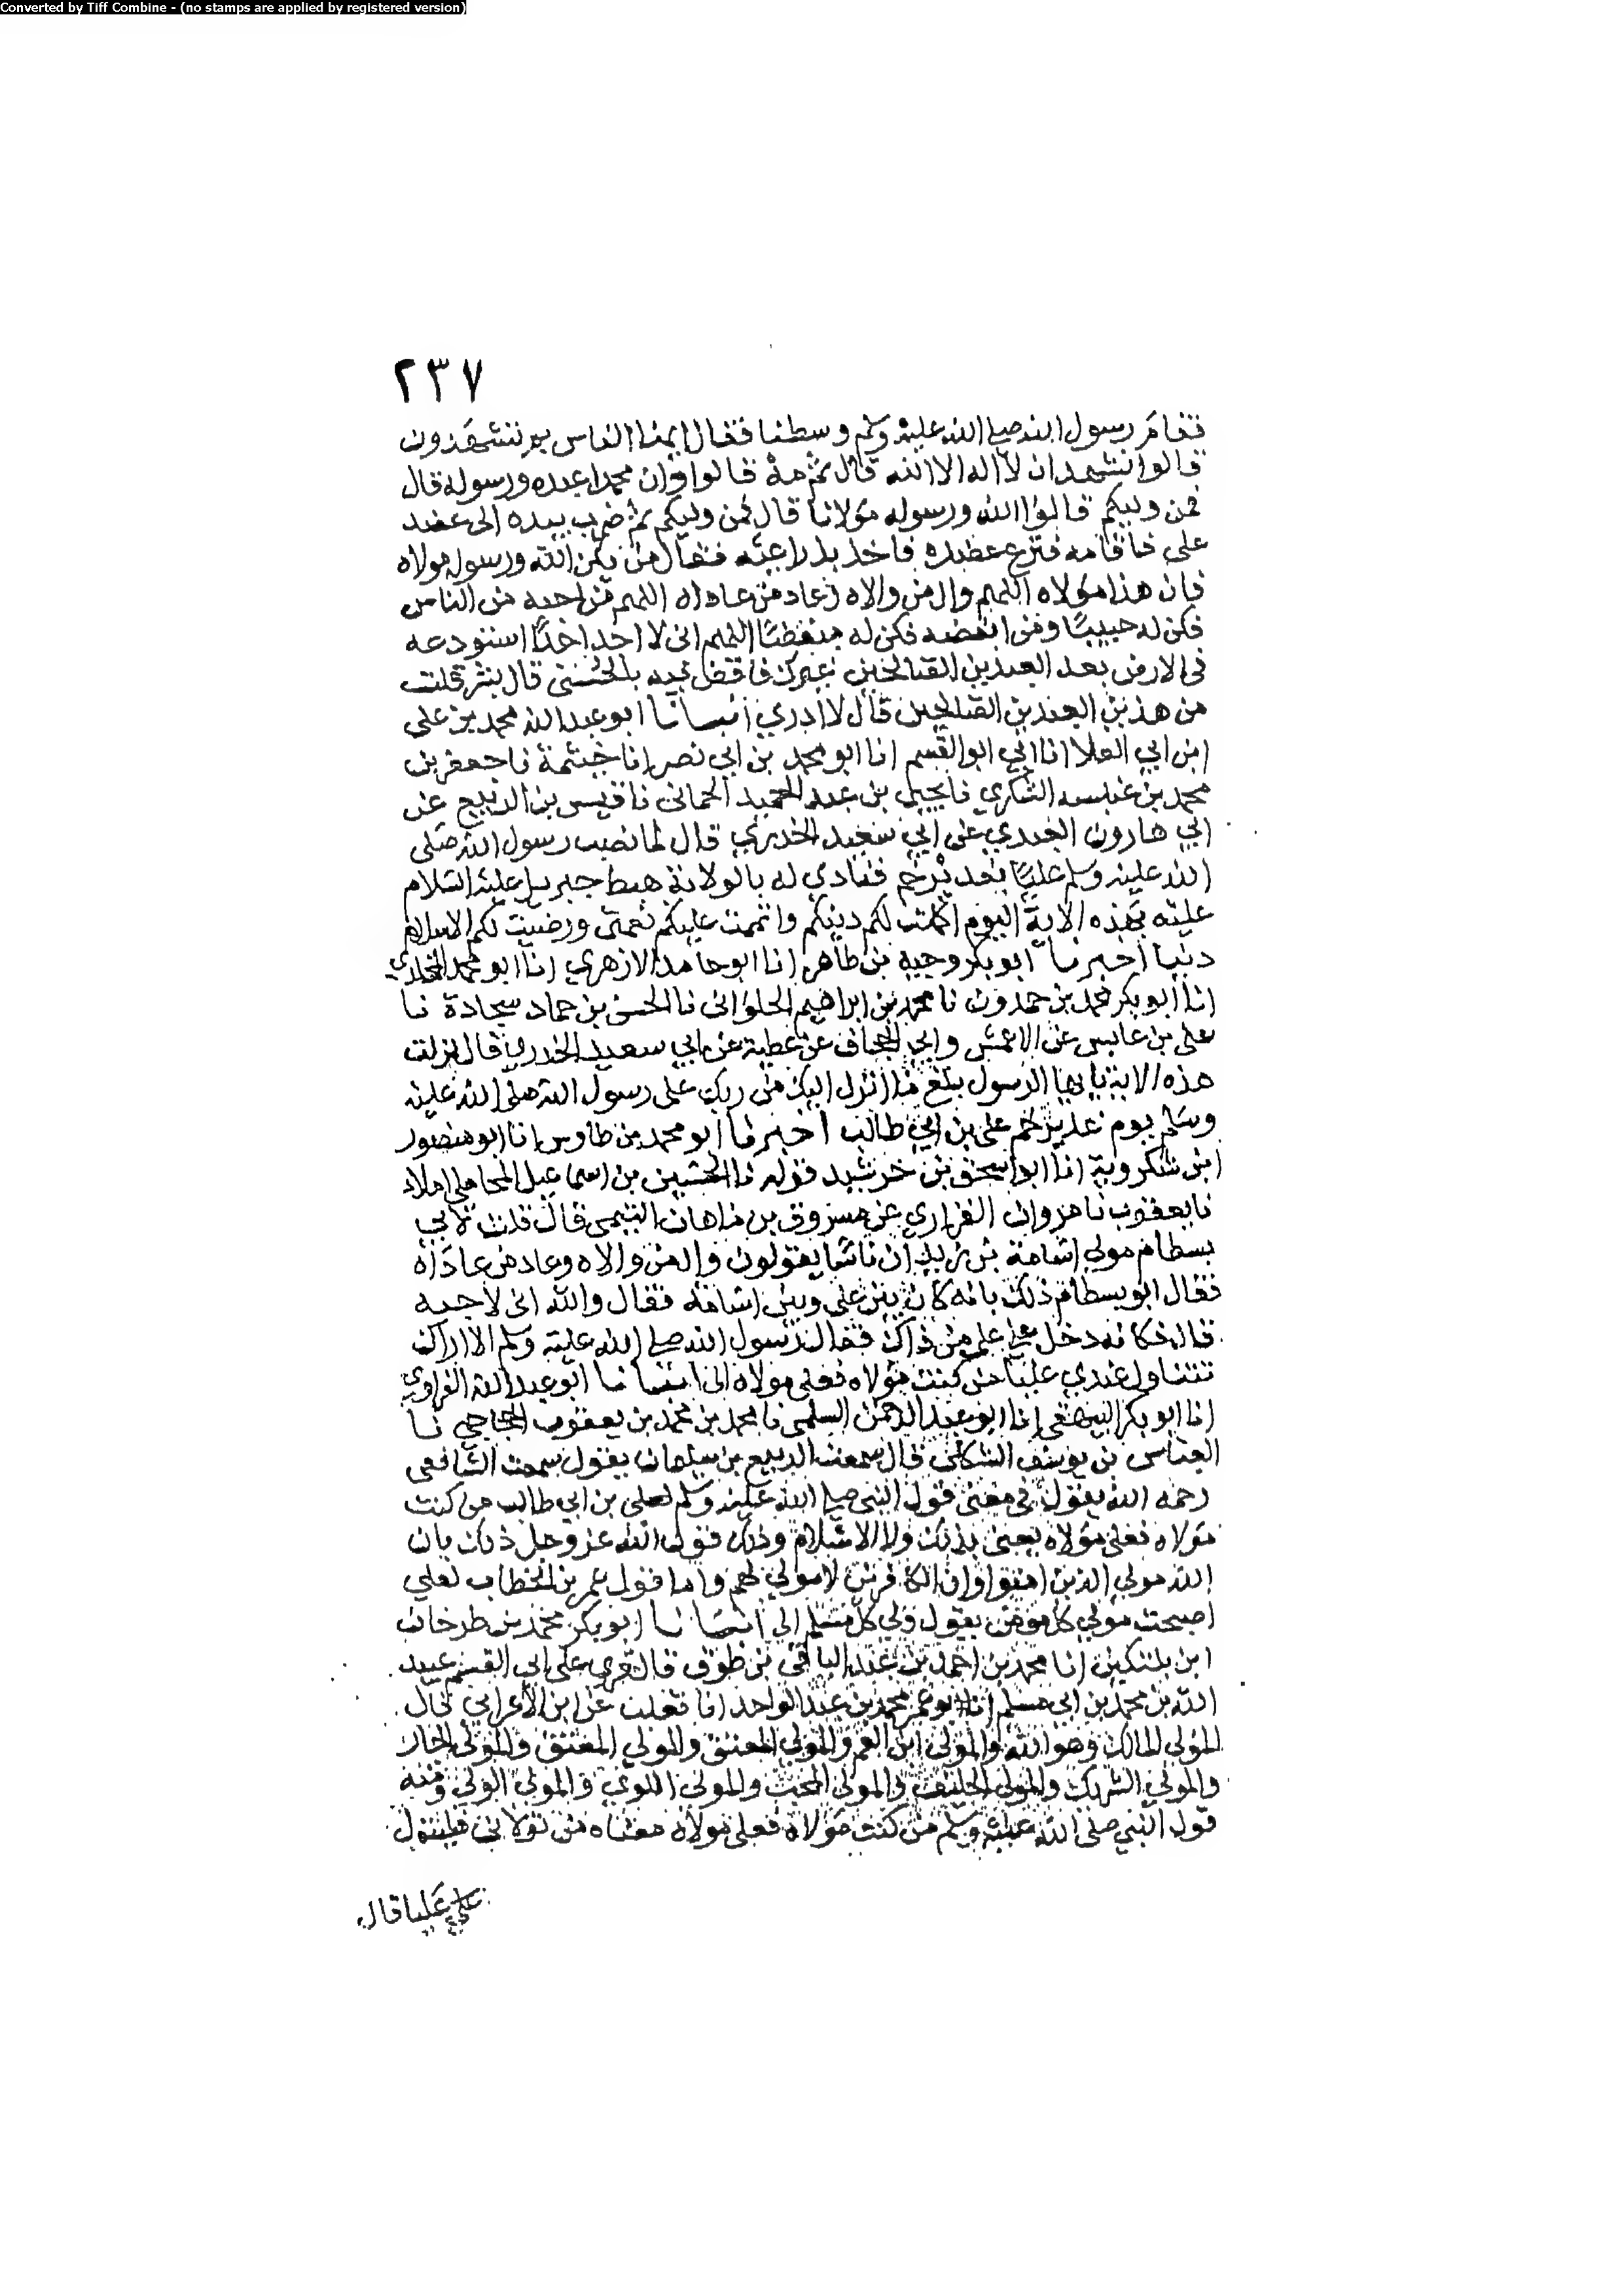 Converted by Tiff Combine - (no stamps are applied by registered version)
٢٣٧
فقام رسول الله صلى الله عليه وسلم وسطنا فقال ايها الناس بم تشهدون
قالوا نشهد ان لا اله الا الله قال ثم مه قالوا وان محمدا عبده ورسوله قال
فمن وليكم قالوا الله ورسوله مولانا قال فمن وليكم ثم ضرب بيده الى عضد
على فاقامه فنزع عضده فاخذ بذراعيه فقال من يكن الله ورسوله مولاه
فان هذا مولاه اللهم وال من والاه وعاد من عاداه اللهم من احبه من الناس
فكن له حبيبا ومن ابغضه فكن له مبغضا اللهم انى لا اجد احدا استودعه
فى الارض بعد العبدين الصالحين غيرك فاقض فيه بالحسنى قال بشر قلت
من هذين العبدين الصالحين قال لا ادري انبانا ابو عبد الله محمد بن على
ابن ابي العلا انا ابي ابو القسم انا ابو محمد بن ابي نصر انا خيثمة نا جعفر بن
محمد بن عنبسه اليشكري نا يحيى بن عبد الحميد الحمانى نا قيس بن الربيع عن
ابي هارون العبدي عن ابي سعيد الخدري قال لما نصب رسول الله صلى
الله عليه وسلم عليا بغدير خم فنادى له بالولاية هبط جبريل عليه السلام
عليه بهذه الاية اليوم اكملت لكم دينكم واتممت عليكم نعمتى ورضيت لكم الاسلام
دينا اخبرنا ابو بكر وجيه بن طاهر انا ابو حامد الازهري انا ابو محمد المخلدي
انا ابو بكر محمد بن حمدون نا محمد بن ابراهيم الحلوانى نا الحسن بن حماد سجادة نا
على بن عابس عن الاعمش وابي الجحاف عن عطية عن ابي سعيد الخدري قال نزلت
هذه الاية يا يها الرسول بلغ ما انزل اليك من ربك على رسول الله صلى الله عليه
وسلم يوم غدير خم على بن ابي طالب اخبرنا ابو محمد بن طاوس انا ابو منصور
ابن شكروية انا ابو اسحق بن خرشيد قوله نا الحسين بن اسماعيل المحاملي املاء
نا يعقوب نا مروان الفزاري عن مسروق بن ماهان التيمى قال قلت لابي
بسطام مولى اسامة بن زيد ان ناسا يقولون وال من والاه وعاد من عاداه
فقال ابو بسطام ذلك بانه كان بين على وبين اسامة فقال والله انى لاحبه
قال فكانه دخل على على من ذاك فقال رسول الله صلى الله عليه وسلم الا اراك
تتناول عندي عليا من كنت مولاه فعلى مولاه الى انبانا ابو عبد الله الفراوي
انا ابو بكر البيهقى انا ابو عبد الرحمن السلمى نا محمد بن محمد بن يعقوب الحجاجى نا
العباس بن يوسف الشكلى قال سمعت الربيع بن سليمان يقول سمعت الشافعى
رحمه الله يقول في معنى قول النبي صلى الله عليه وسلم لعلى بن ابي طالب من كنت
مولاه فعلى مولاه يعنى بذلك ولا الاسلام وذلك قول الله عز وجل ذلك بان
الله مولى الذين امنوا وان الكافرين لا مولى لهم واما قول عمر بن الخطاب لعلي
اصبحت مولى كل مومن يقول ولى كل مسلم الى انبانا ابو بكر محمد بن طرخان
ابن بلتكين انا محمد بن احمد بن عبد الباقى بن طوق قال قري على ابى القسم عبيد
الله بن محمد بن ابي مسلم انا ابو عمر محمد بن عبد الواحد انا ثعلب عن ابن الاعرابي قال
المولى المالك وهو الله والمولى ابن العم والمولى المعتق والمولى المعتق والمولى الجار
والمولى الشريك والمولى الحليف والمولى المحب والمولى اللوي والمولى الولى ومنه
قول النبي صلى الله عليه وسلم من كنت مولاه فعلى مولاه معناه من تولانى فليتول
عليا قال